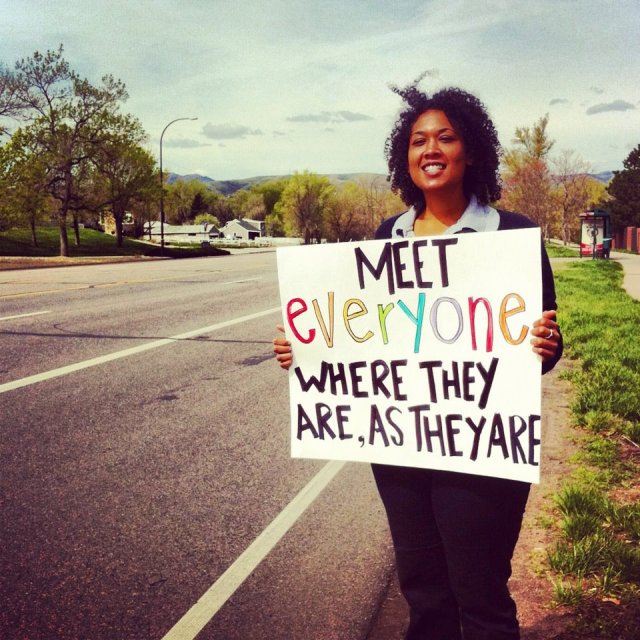 MEET
everyone
WHERE THEY
ARE, AS THEY ARE